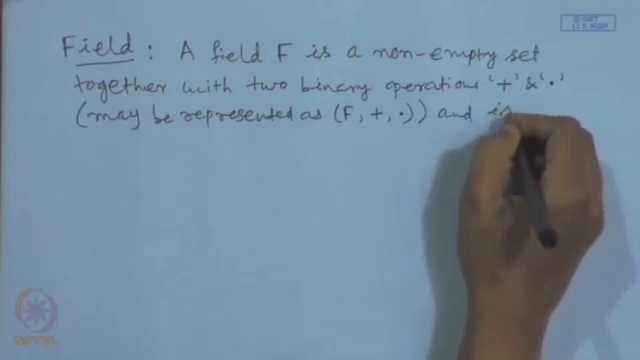 © CET
I.I.T. KGP
Field : A field F is a non-empty set
together with two binary operations '+' & '•'
(may be represented as (F, +, •)) and is
NPTEL